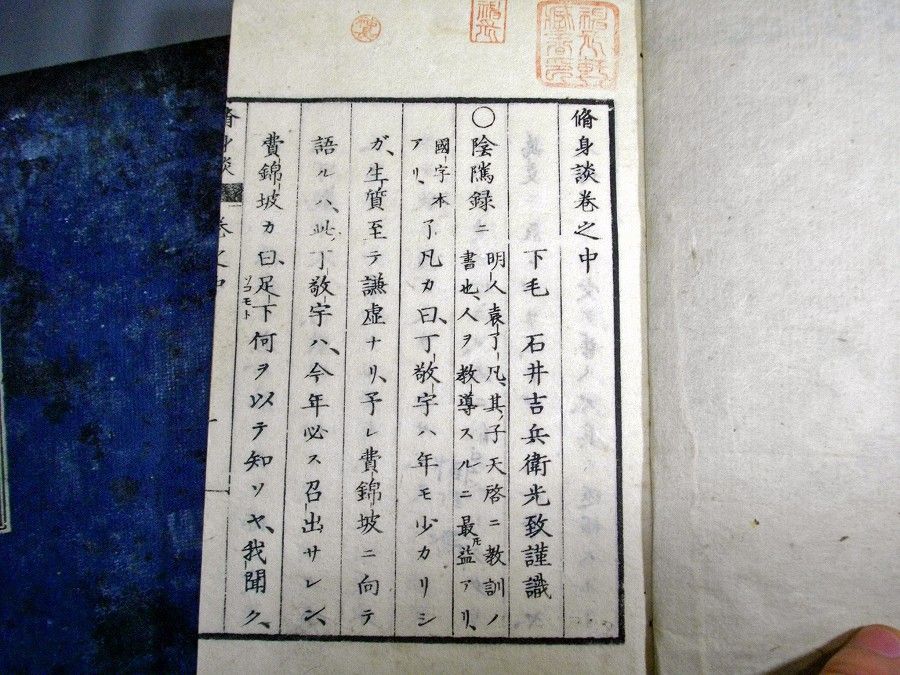 脩身談卷之中
下毛 石井吉兵衛光致謹識
〇陰隲録ニ
明人袁了凡、其ノ子天啓ニ教訓ノ
書也、人ヲ教導スルニ最モ益アリ、
國字本
アリ、
了凡カ曰、丁敬宇ハ年モ少カリシ
ガ、生質至テ謙虚ナリ、予レ費錦坡ニ向テ
語ルハ、此丁敬宇ハ、今年必ス召出サレン、
費錦坡カ曰、足下何ヲ以テ知ソヤ、我聞ク、
ソコモト
脩身談 卷之中 一